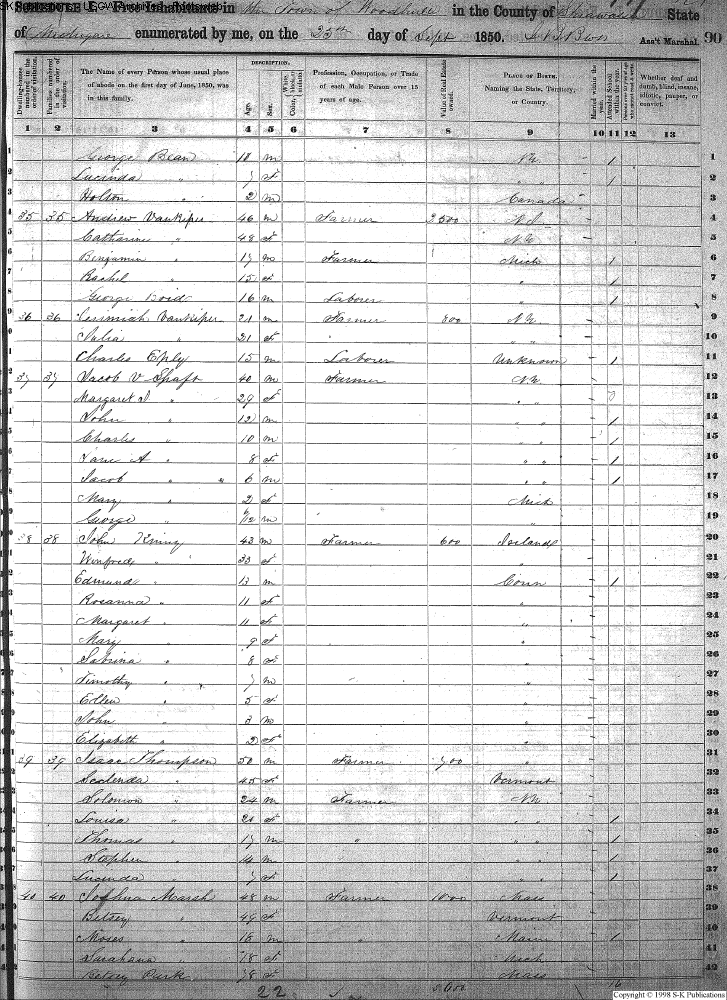 SCHEDULE I. Free Inhabitants in the Town of Woodhull in the County of Shiawassee State
of Michigan enumerated by me, on the 25th day of Sept 1850. Ass't Marshal. 90
Dwelling-houses numbered in the order of visitation.
Families numbered in the order of visitation.
The Name of every Person whose usual place of abode on the first day of June, 1850, was in this family.
DESCRIPTION.
Age.
Sex.
Color, White, black, or mulatto.
Profession, Occupation, or Trade of each Male Person over 15 years of age.
Value of Real Estate owned.
PLACE OF BIRTH. Naming the State, Territory, or Country.
Married within the year.
Attended School within the year.
Whether deaf and dumb, blind, insane, idiotic, pauper, or convict.
1 2 3 4 5 6 7 8 9 10 11 12 13
1 George Bean 18 m 1 1
2 Lucinda " 7 f 1 2
3 Holton " 2 m Canada 3
4 35 35 Andrew Vankiper 46 m Farmer 2500 N.J. 4
5 Catharine " 48 f N.Y. 5
6 Benjamin " 17 m Farmer Mich 1 6
7 Rachel " 15 f " 1 7
8 George Boid 16 m Laborer " 1 8
9 36 36 Jerimiah Vankiper 21 m Farmer 800 N.Y. 9
10 Julia " 21 f " " 10
11 Charles Eply 15 m Laborer Unknown 1 11
12 37 37 Jacob V Spaft 40 m Farmer N.Y. 12
13 Margaret J " 29 f " " 13
14 John " 12 m " " 1 14
15 Charles " 10 m " " 1 15
16 Jane A " 8 f " " 1 16
17 Jacob " " 6 m " " 1 17
18 Mary " 2 f Mich 18
19 George " /12 m " 19
20 38 38 John Kinny 43 m Farmer 600 Ireland 20
21 Winfred " 33 f " 21
22 Edmund " 13 m Conn 1 22
23 Rosanna " 11 f " 23
24 Margaret " 11 f " 24
25 Mary " 9 f " 25
26 Sabrina " 8 f " 26
27 Timothy " 7 m " 27
28 Ellen " 5 f " 28
29 John " 3 m " 29
30 Elizabeth " 2 f " 30
31 39 39 Isaac Thompson 50 m Farmer 700 " 31
32 " 45 f Vermont 32
33 Solomon " 24 m Farmer 33
34 Louisa " 20 f " " 1 34
35 Thomas " 17 m " " " 1 35
36 Stephen " 14 m " " 1 36
37 Lucinda " 7 f " " 1 37
38 40 40 Joshua Marsh 48 m Farmer 1000 Mass 38
39 Betsey " 49 f Vermont 39
40 Moses " 18 m " Maine 1 40
41 Sarahana " 18 f Mich 41
42 Betsey Park 78 f Mass 42
22 5600 16
Copyright © 1998 S-K Publications